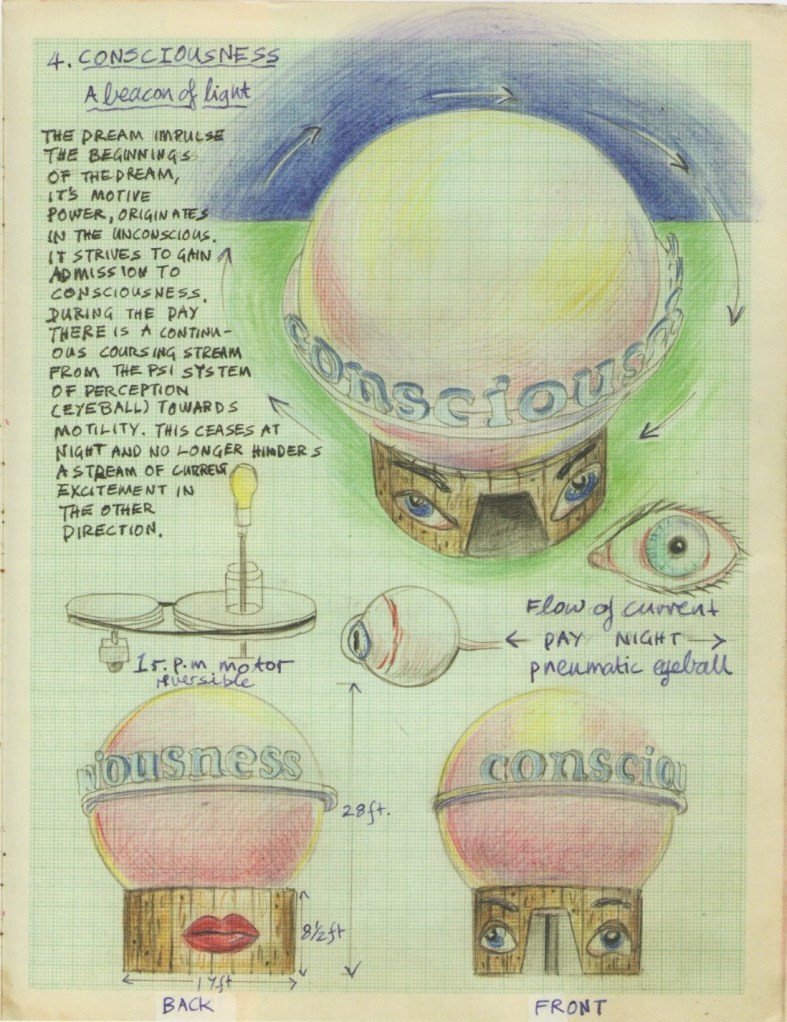 4. CONSCIOUSNESS
A beacon of light
THE DREAM IMPULSE
THE BEGINNINGS
OF THE DREAM,
IT'S MOTIVE
POWER, ORIGINATES
IN THE UNCONSCIOUS.
IT STRIVES TO GAIN
ADMISSION TO
CONSCIOUSNESS.
DURING THE DAY
THERE IS A CONTINU-
OUS COURSING STREAM
FROM THE PSI SYSTEM
OF PERCEPTION
(EYEBALL) TOWARDS
MOTILITY. THIS CEASES AT
NIGHT AND NO LONGER HINDERS
A STREAM OF CURRENT
EXCITEMENT IN
THE OTHER
DIRECTION.
consciousness
1 r.p.m motor
reversible
Flow of current
← DAY NIGHT →
pneumatic eyeball
iousness
consciou
28ft.
8½ft
17ft
BACK
FRONT